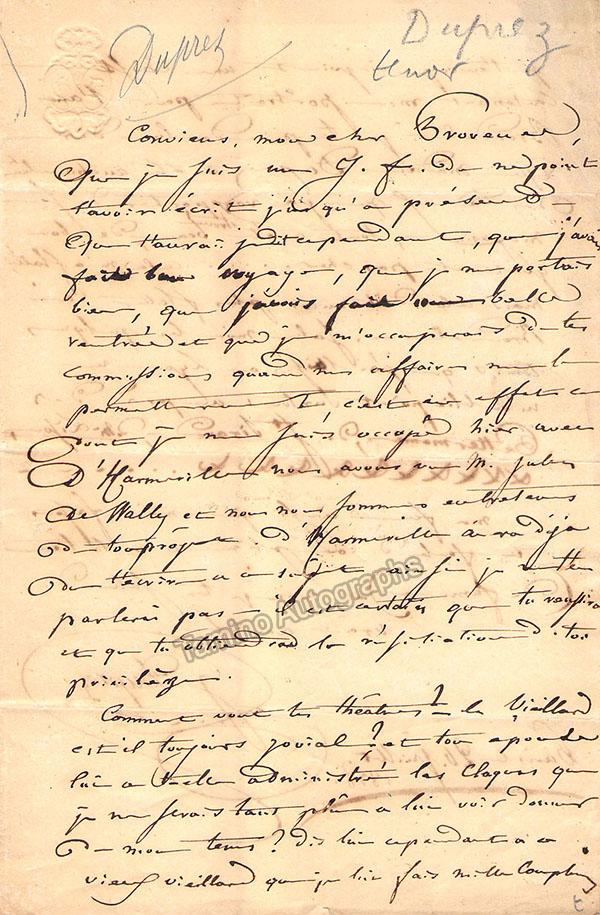 Duprez
Duprez
tenor
Conviens, mon cher
Que je suis un J. f. De ne point
t'avoir écrit jusqu'à présent
Du t'aurai je dit cependant, que j'avais
fait bon voyage, que je me portais
bien, que j'avais fait une belle
rentrée et que je m'occuperais de tes
commissions quand mes affaires me le
permettraient c'est en effet ce
dont je me suis occupé hier avec
D'Harmeville nous avons vu M. Jules
De Wally et nous nous sommes entretenus
De ton projet. D'Harmeville a déja
De t'écrire à ce sujet ainsi je ne t'en
parlerai pas il est certain que tu réussiras
et que tu obtiendras la résiliation de ton
privilège.
Comment vont tes théâtres? le Vieillard
est il toujours jovial? et ton épouse
lui a t-elle administré les claques que
je me serais tant plû à lui voir donner
De mon tems? Dis lui cependant à ce
vieux vieillard que je lui fais mille
Tamino Autographs